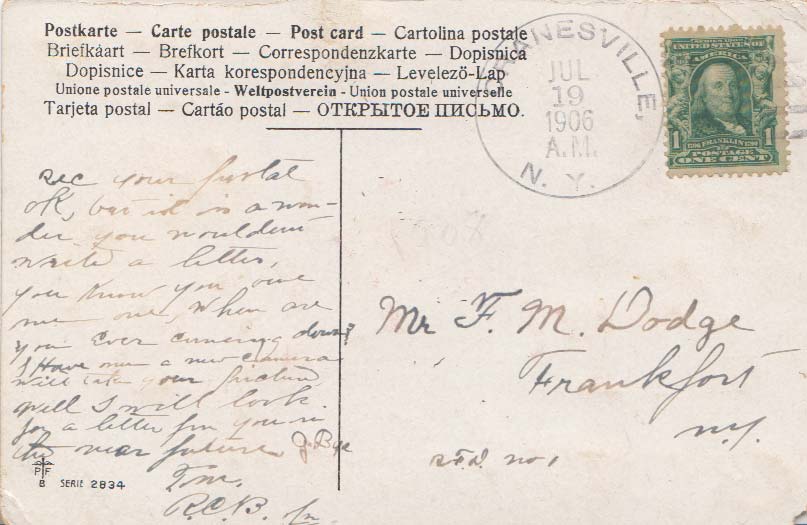 Postkarte — Carte postale — Post card — Cartolina postale
Briefkáart — Brefkort — Correspondenzkarte — Dopisnica
Dopisnice — Karta korespondencyjna — Levelezö-Lap
Unione postale universale - Weltpostverein - Union postale universelle
Tarjeta postal — Cartáo postal — ОТКРЫТОЕ ПИСЬМО.
RANESVILLE,
JUL
19
1906
A.M.
N. Y.
UNITED STATES OF
AMERICA
1 FRANKLIN 1
POSTAGE
ONE CENT
Rec your postal
OK, but it is a won-
der you wouldent
write a letter,
you know you owe
me one, When are
you Ever comeing down?
I Have me a new camera
will take your picture
well I will look
for a letter from you in
the near future G. Bye
From
R.C.B. Jr.
Mr F. M. Dodge
Frankfort
N.Y.
R.F.D. No 1
P F
B
SERIE 2834